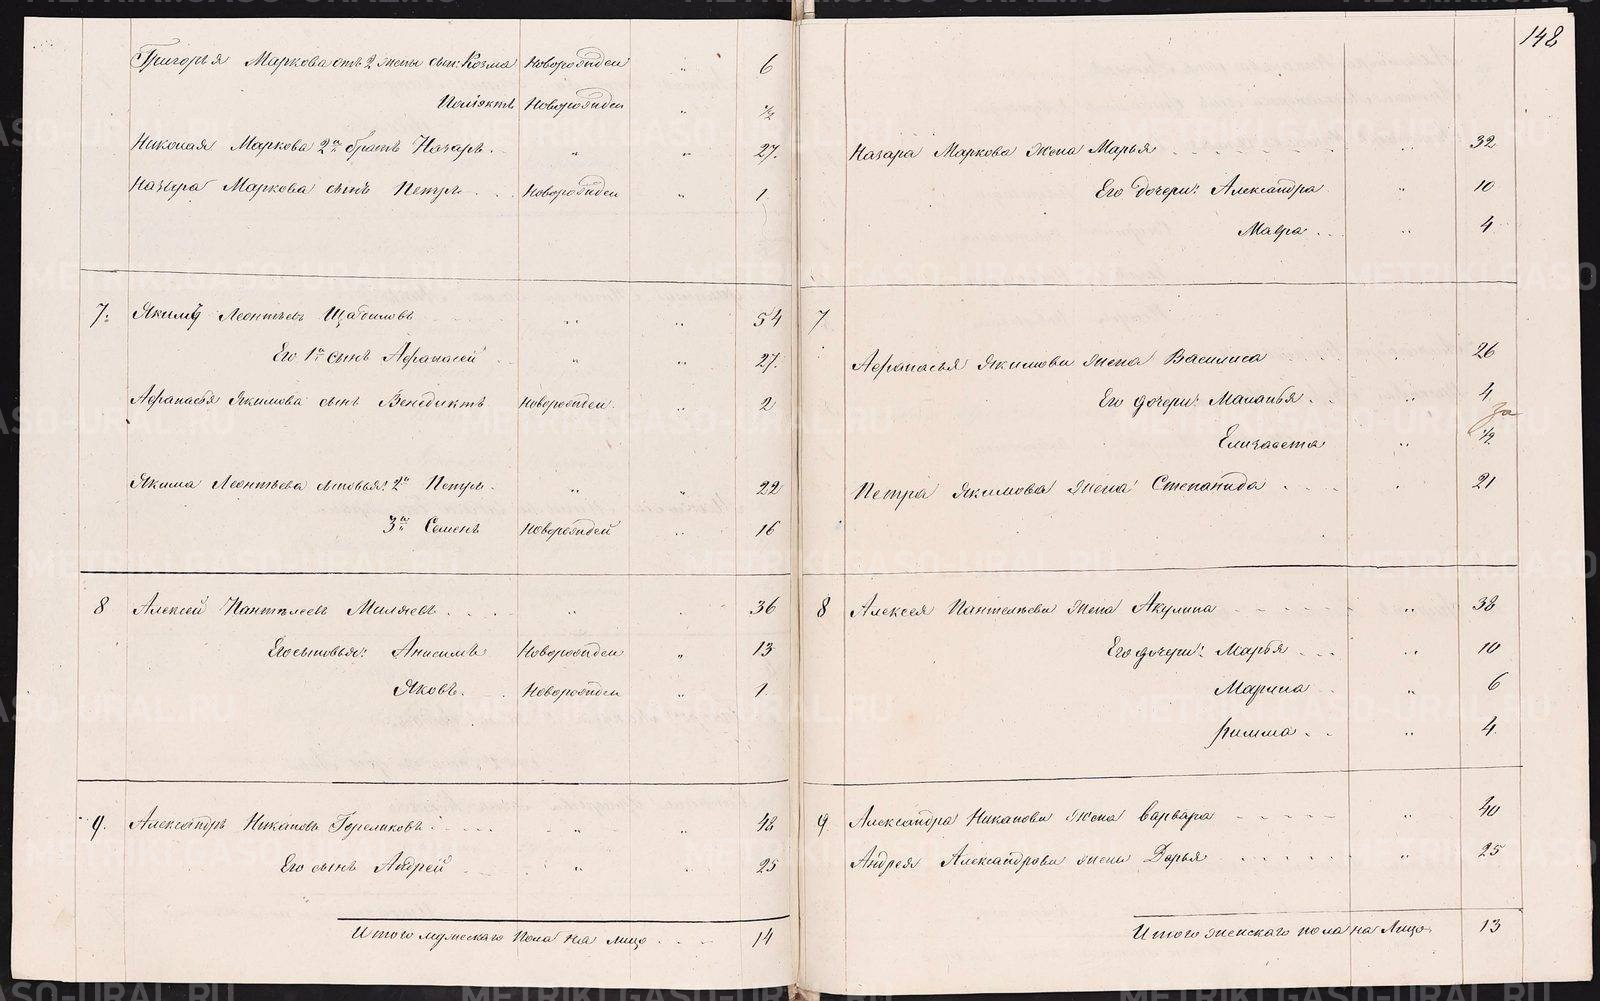 148
Григорья Маркова отъ 2 жены сын: Козма Новорожден " 6
Полiяктъ Новорожден " ½
Николая Маркова 2й братъ Назаръ " " 27.
Назара Маркова сынъ Петръ Новорожден " 1
Назара Маркова жена Марья " 32
Его дочери: Александра " 10
Мавра " 4
7. Якимъ Леонтьевъ Щабимовъ " " 54
Его 1й сынъ Афанасей " " 27.
Афанасья Якимова сынъ Венедиктъ Новорожден. " 2
Якима Леонтьева сыновья: 2й Петръ " " 22
3й Семенъ Новорождей " 16
7
Афанасья Якимова жена Василиса 26
Его дочери: Маланья " 4
Елизавета " ½
Петра Якимова жена Степанида 21
8 Алексей Пантелеевъ Миляевъ " 36
Его сыновья: Анисимъ Новорожден " 13
Яковъ Новорожден " 1
8 Алексея Пантелеева жена Акулина " 38
Его дочери: Марья " 10
Марина " 6
Римма " 4
9. Александръ Никановъ Гореликовъ " " 48
Его сынъ Андрей " 25
Итого мужескаго пола на лицо 14
9 Александра Никанова жена Варвара " 40
Андрея Александрова жена Дарья " 25
Итого женскаго пола на лицо 13
METRIKI.GASO-URAL.RU